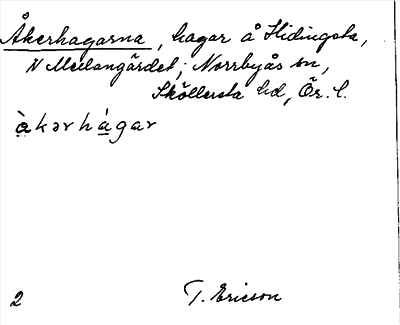 Åkerhagarna, hagar å Hidingsta,
N Mellangärdet; Norrbyås sn,
Sköllersta hd, Ör. l.
å̀kərhá̱gar
2 T. Ericson